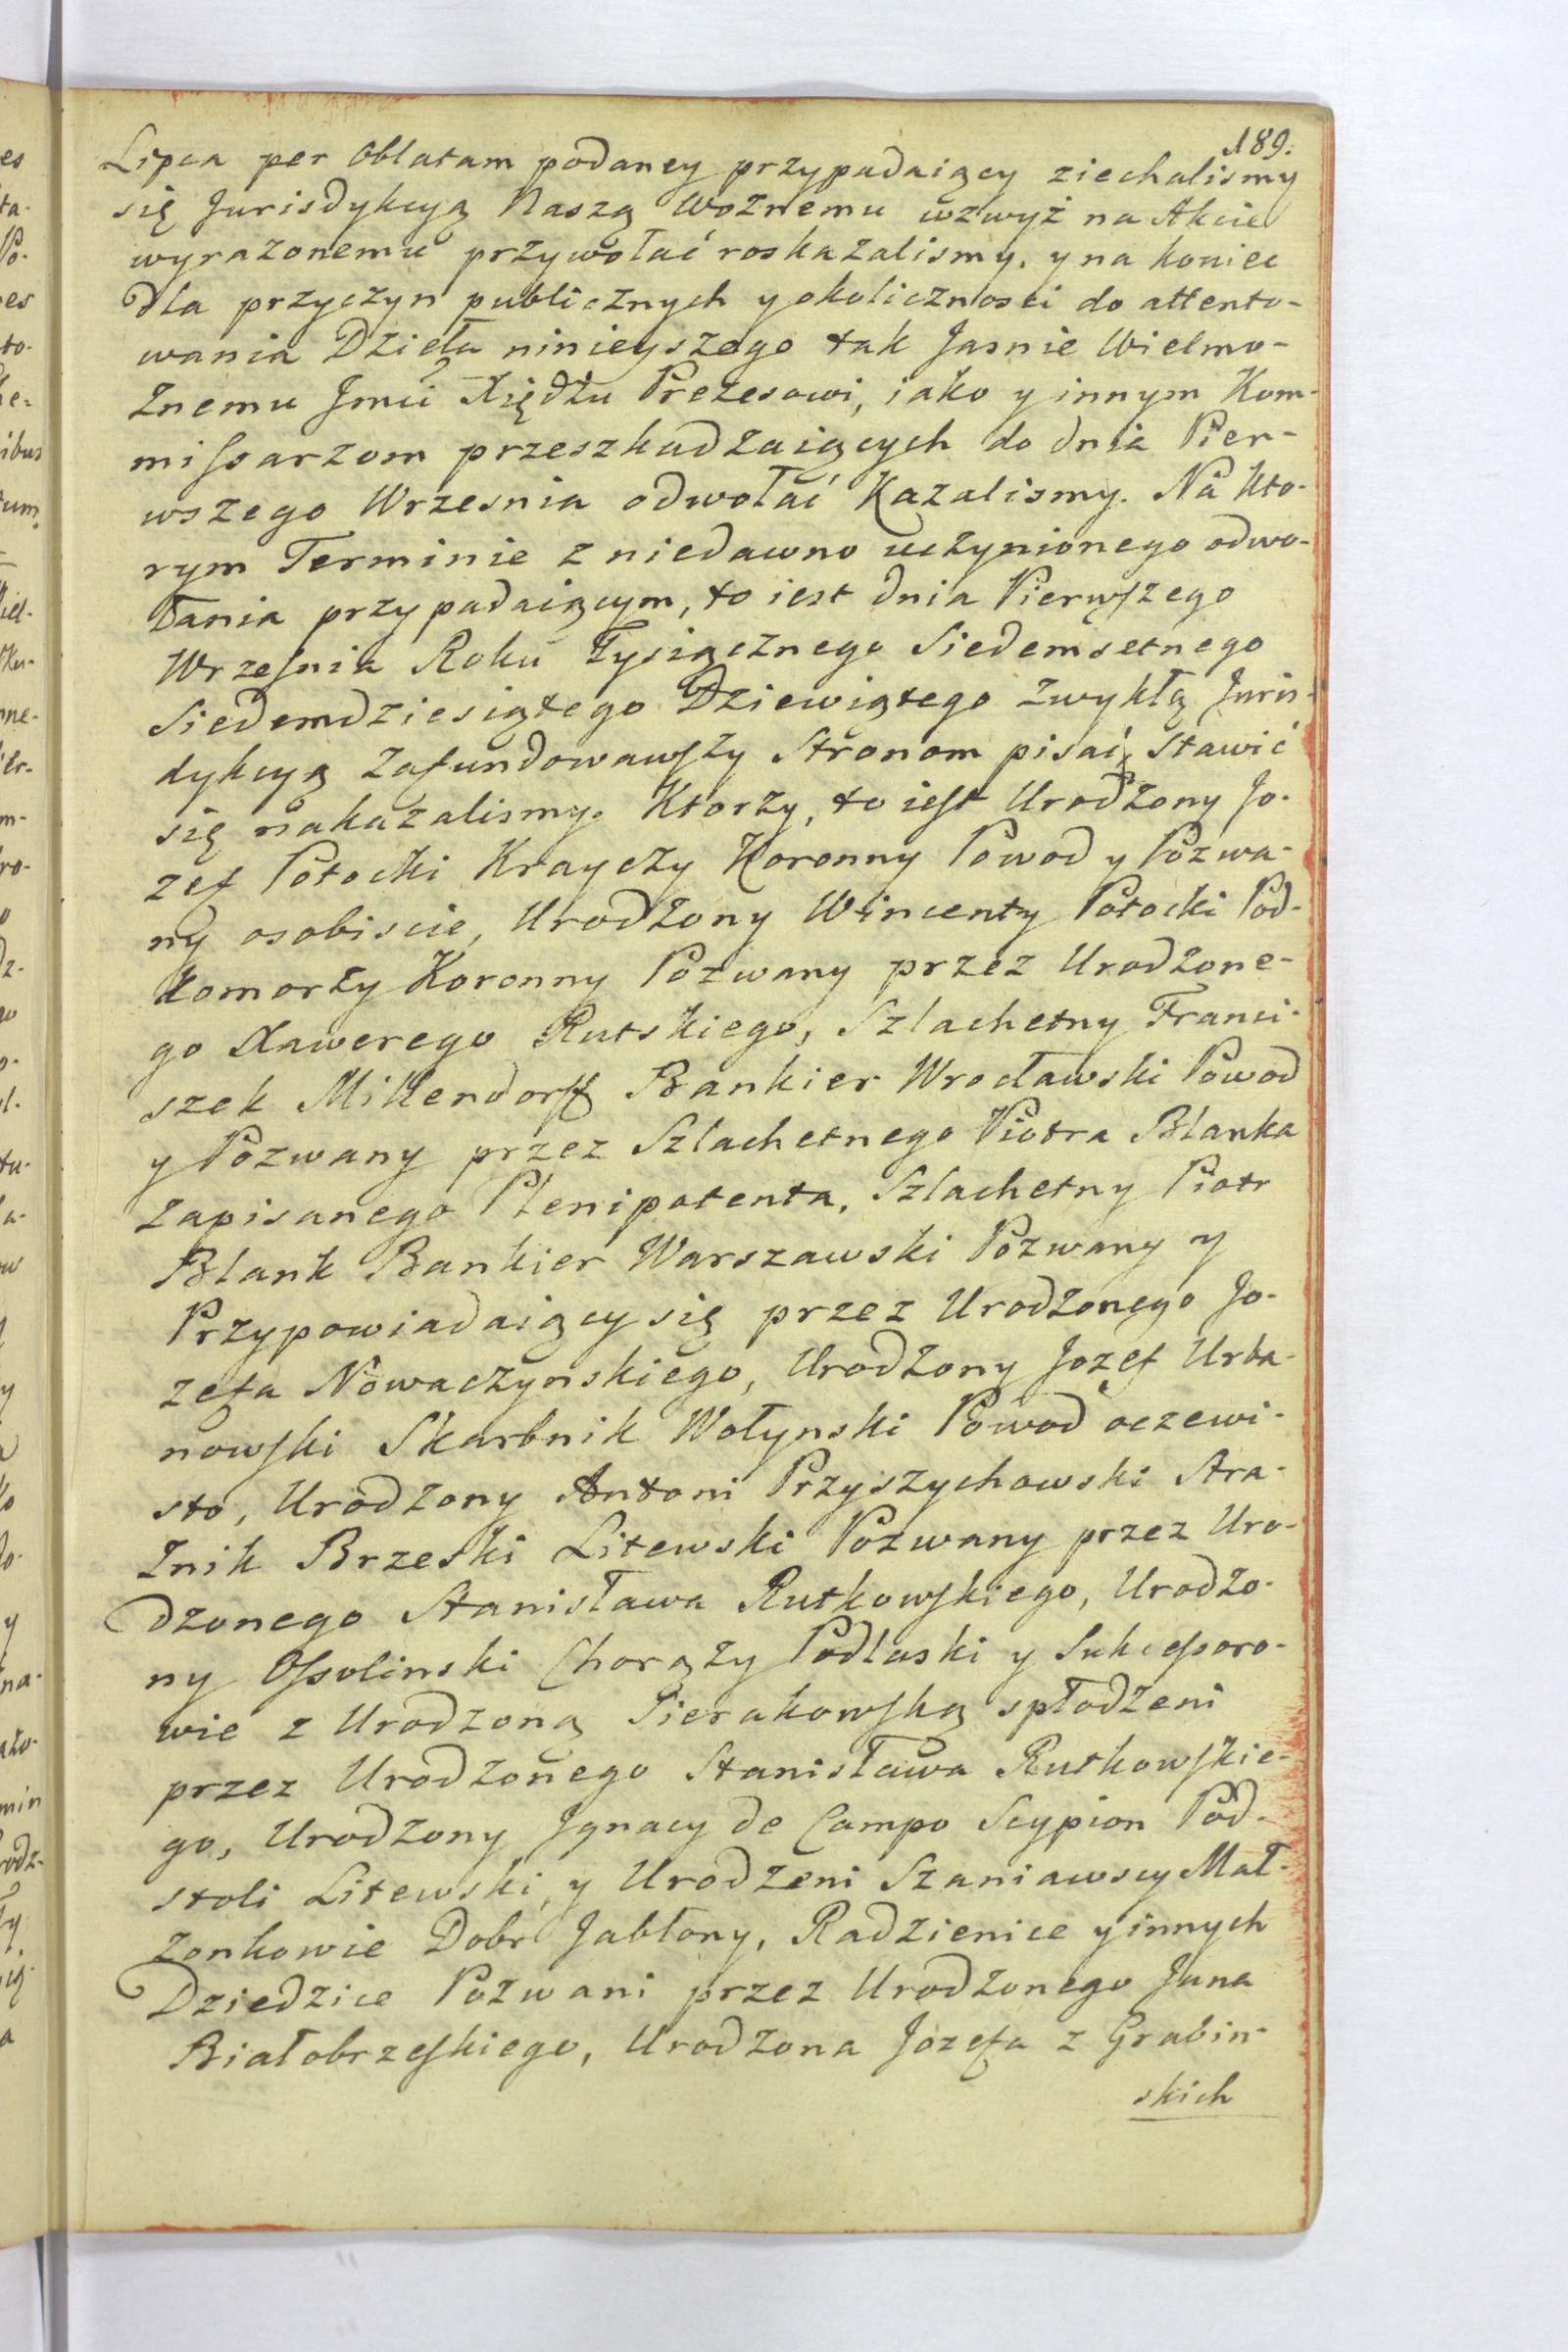 189.
Lipca per Oblatam podaney przypadaiący ziechalismy
się Jurisdykcyą Naszą Woznemu wzwyż na Akcie
wyrazonemu przywołać roskazalismy, y na koniec
dla przyczyn publicznych y okolicznosci do attento-
wania Dzieła ninieyszego tak Jasnie Wielmo-
znemu Jmci Xiędzu Prezesowi, iako y innym Kom-
missarzom przeszkadzaiących do dnia Pier-
wszego Wrzesnia odwołać Kazalismy. Na kto-
rym Terminie z niedawno uczynionego odwo-
łania przypadaiącym, to iest dnia Pierwszego
Wrzesnia Roku Tysiącznego Siedemsetnego
Siedemdziesiątego Dziewiątego zwykłą Juris-
dykcyą zafundowawszy Stronom pisać, stawić
się nakazalismy. Ktorzy, to iest Urodzony Jo-
zef Potocki Krayczy Koronny Powod y Pozwa-
ny osobiscie, Urodzony Wincenty Potocki Pod-
komorzy Koronny Pozwany przez Urodzone-
go Xawerego Rutskiego, Szlachetny Franci-
szek Millendorff Bankier Wrocławski Powod
y Pozwany przez Szlachetnego Piotra Blanka
zapisanego Plenipotenta, Szlachetny Piotr
Blank Bankier Warszawski Pozwany y
Przypowiadaiący się przez Urodzonego Jo-
zefa Nowaczynskiego, Urodzony Jozef Urba-
nowski Skarbnik Wołynski Powod oczewi-
sto, Urodzony Antoni Przyszychowski Stra-
znik Brzeski Litewski Pozwany przez Uro-
dzonego Stanisława Rutkowskiego, Urodzo-
ny Ossolinski Chorązy Podlaski y Sukcessoro-
wie z Urodzoną Sierakowską spłodzeni
przez Urodzonego Stanisława Rutkowskie-
go, Urodzony Jgnacy de Campo Scypion Pod-
stoli Litewski, y Urodzeni Szaniawscy Mał-
zonkowie Dobr Jabłony, Radzienice y innych
Dziedzice Pozwani przez Urodzonego Jana
Białobrzeskiego, Urodzona Jozefa z Grabin-
skich